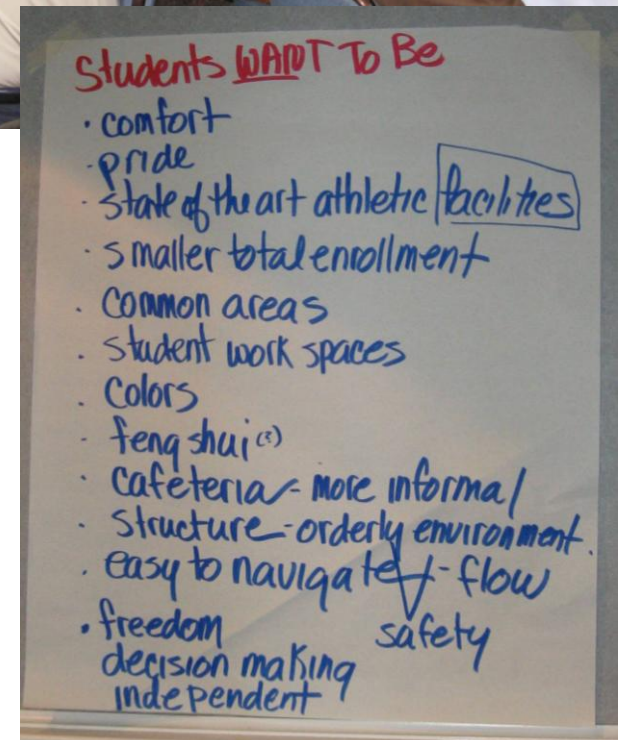 Students WANT To Be
· comfort
- pride
· state of the art athletic facilities
· smaller total enrollment
· common areas
· student work spaces
· colors
· feng shui (?)
· cafeteria - more informal
· structure - orderly environment.
· easy to navigate - flow
safety
· freedom
decision making
independent